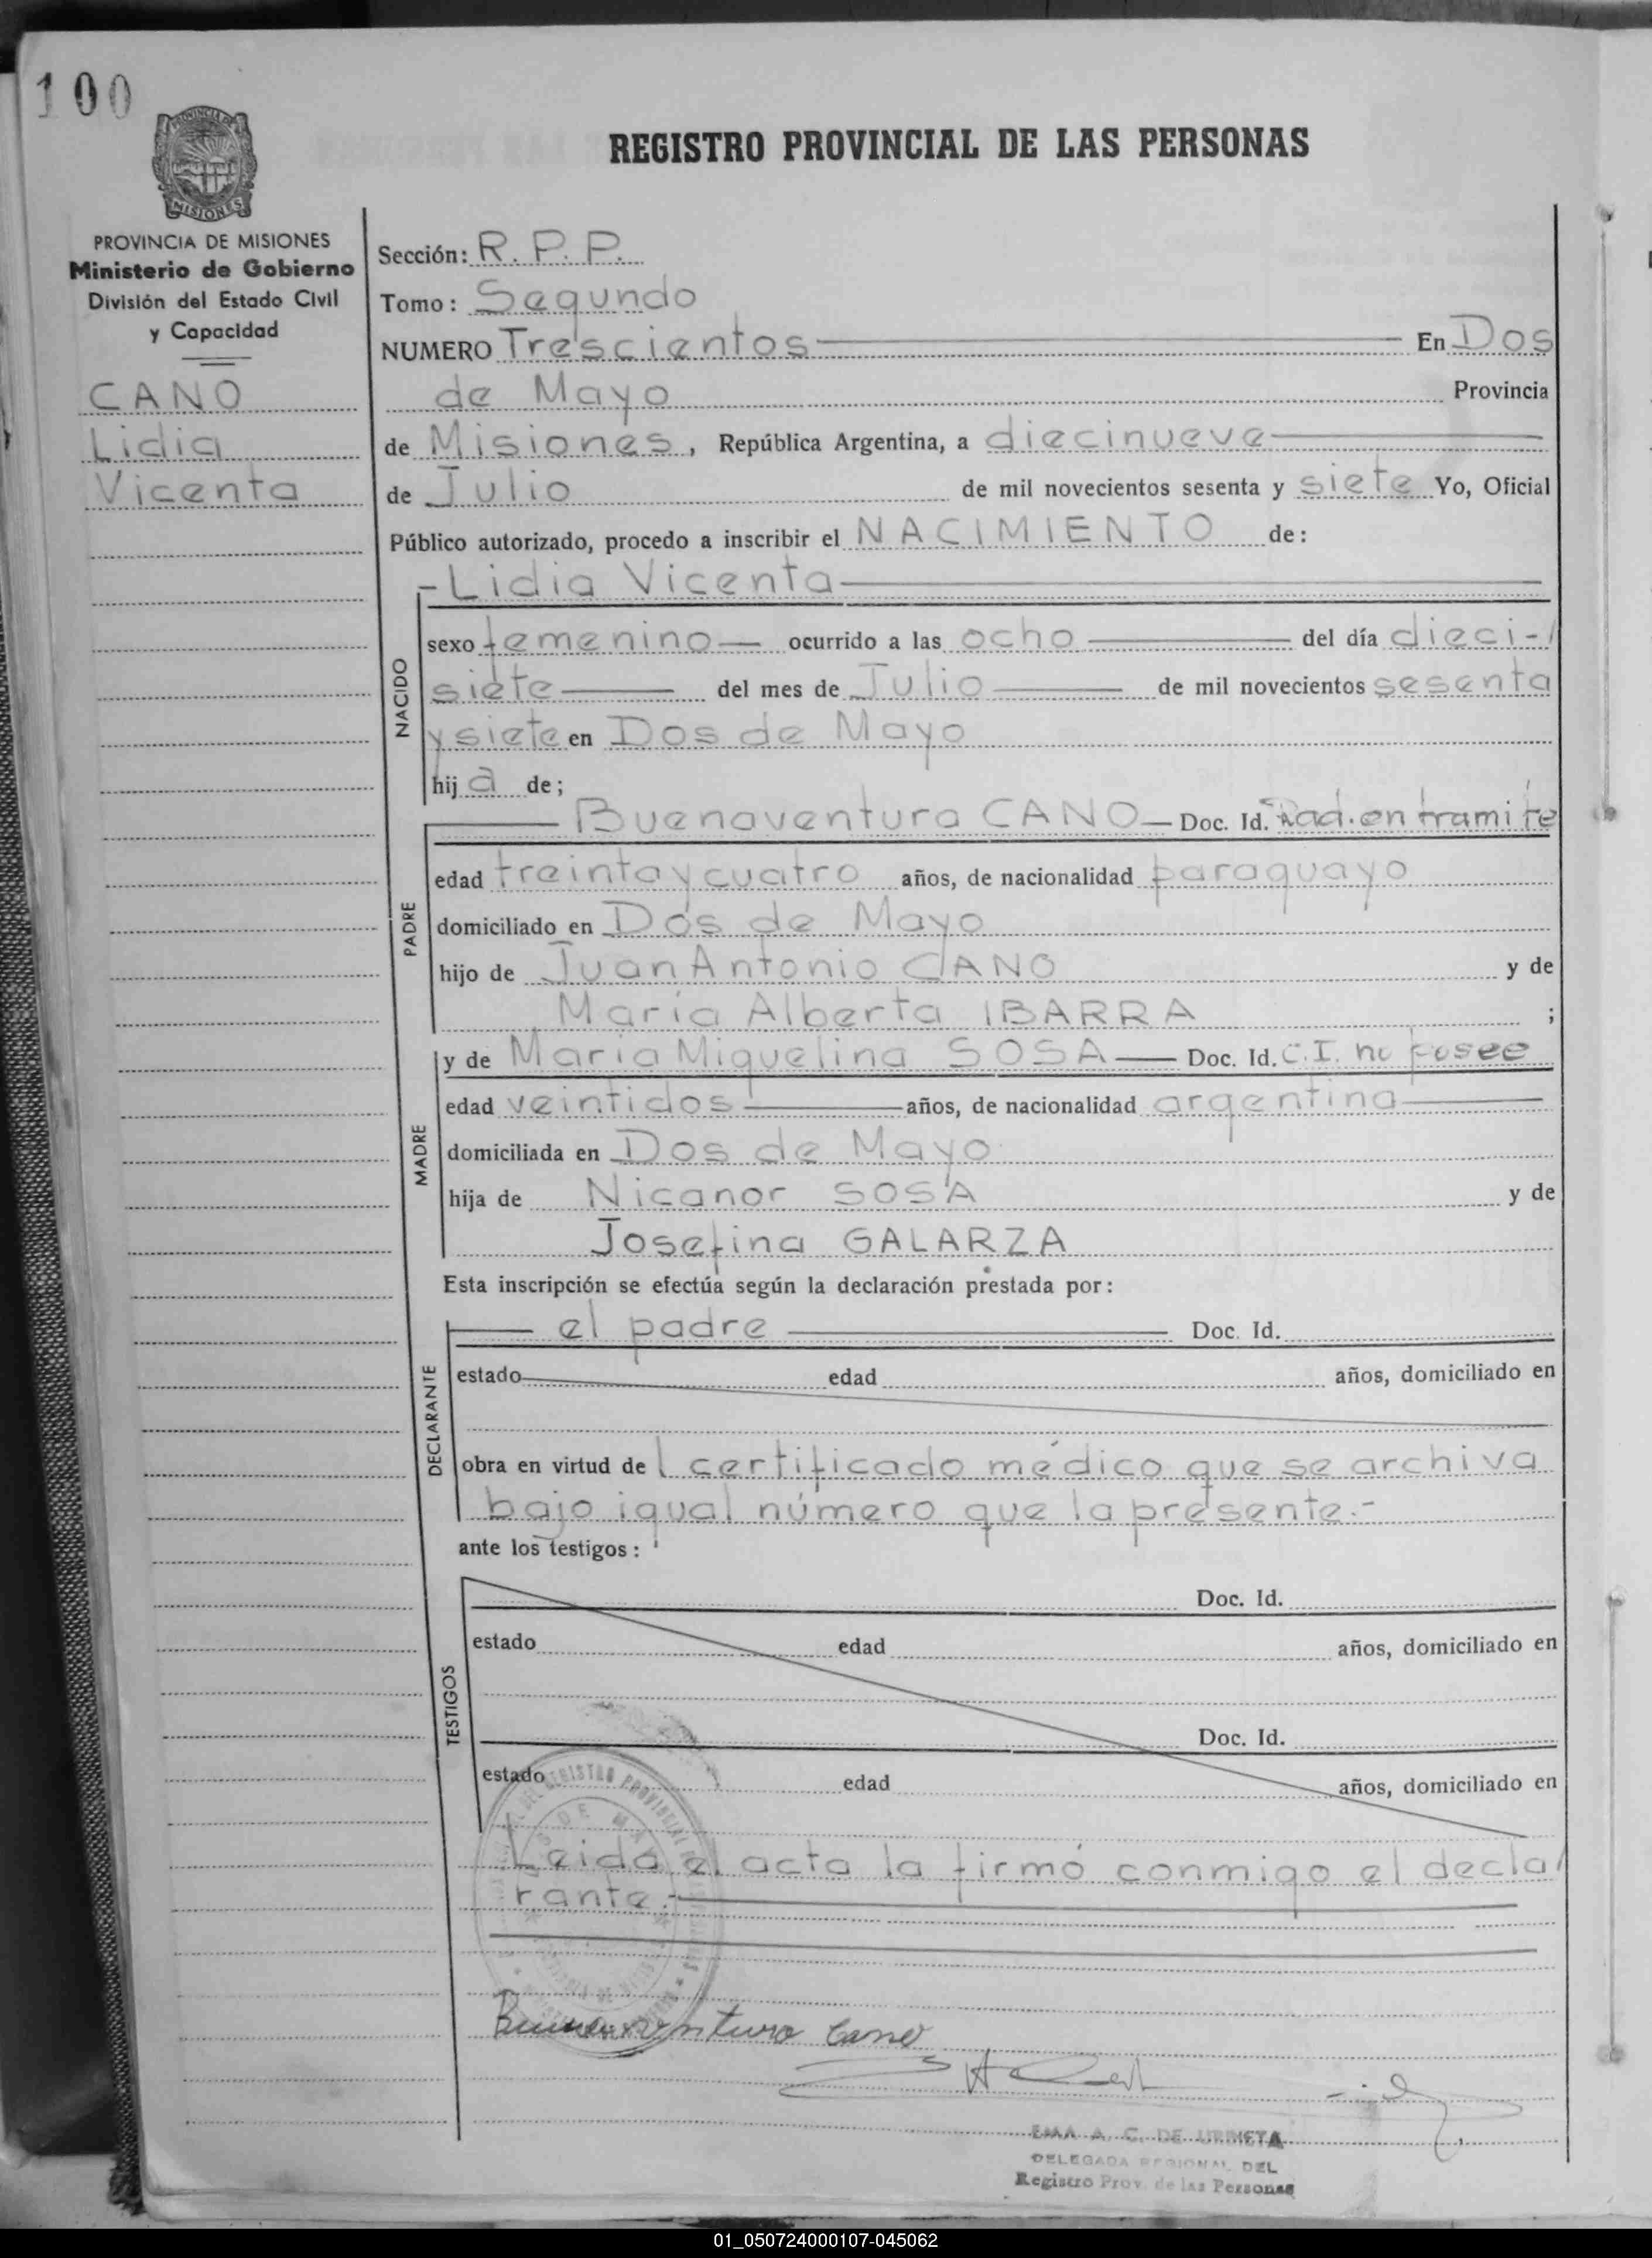 100
PROVINCIA DE MISIONES
REGISTRO PROVINCIAL DE LAS PERSONAS
PROVINCIA DE MISIONES
Ministerio de Gobierno
División del Estado Civil
y Capacidad
CANO
Lidia
Vicenta
Sección: R. P. P.
Tomo: Segundo
NUMERO Trescientos En Dos
de Mayo Provincia
de Misiones, República Argentina, a diecinueve
de Julio de mil novecientos sesenta y siete Yo, Oficial
Público autorizado, procedo a inscribir el NACIMIENTO de:
- Lidia Vicenta
NACIDO
sexo femenino ocurrido a las ocho del día dieci-
siete del mes de Julio de mil novecientos sesenta
y siete en Dos de Mayo
hij a de;
PADRE
Buenaventura CANO Doc. Id. Rad. en tramite
edad treinta y cuatro años, de nacionalidad paraguayo
domiciliado en Dos de Mayo
hijo de Juan Antonio CANO y de
María Alberta IBARRA ;
MADRE
y de María Miguelina SOSA Doc. Id. C.I. no posee
edad veintidos años, de nacionalidad argentina
domiciliada en Dos de Mayo
hija de Nicanor SOSA y de
Josefina GALARZA
Esta inscripción se efectúa según la declaración prestada por:
DECLARANTE
el padre Doc. Id.
estado edad años, domiciliado en
obra en virtud de l certificado médico que se archiva
bajo igual número que la presente.-
ante los testigos:
TESTIGOS
Doc. Id.
estado edad años, domiciliado en
Doc. Id.
estado edad años, domiciliado en
Leida el acta la firmó conmigo el decla
rante.-
Buenaventura Cano
EMA A. C. DE URRIETA
DELEGADA REGIONAL DEL
Registro Prov. de las Personas
01_050724000107-045062